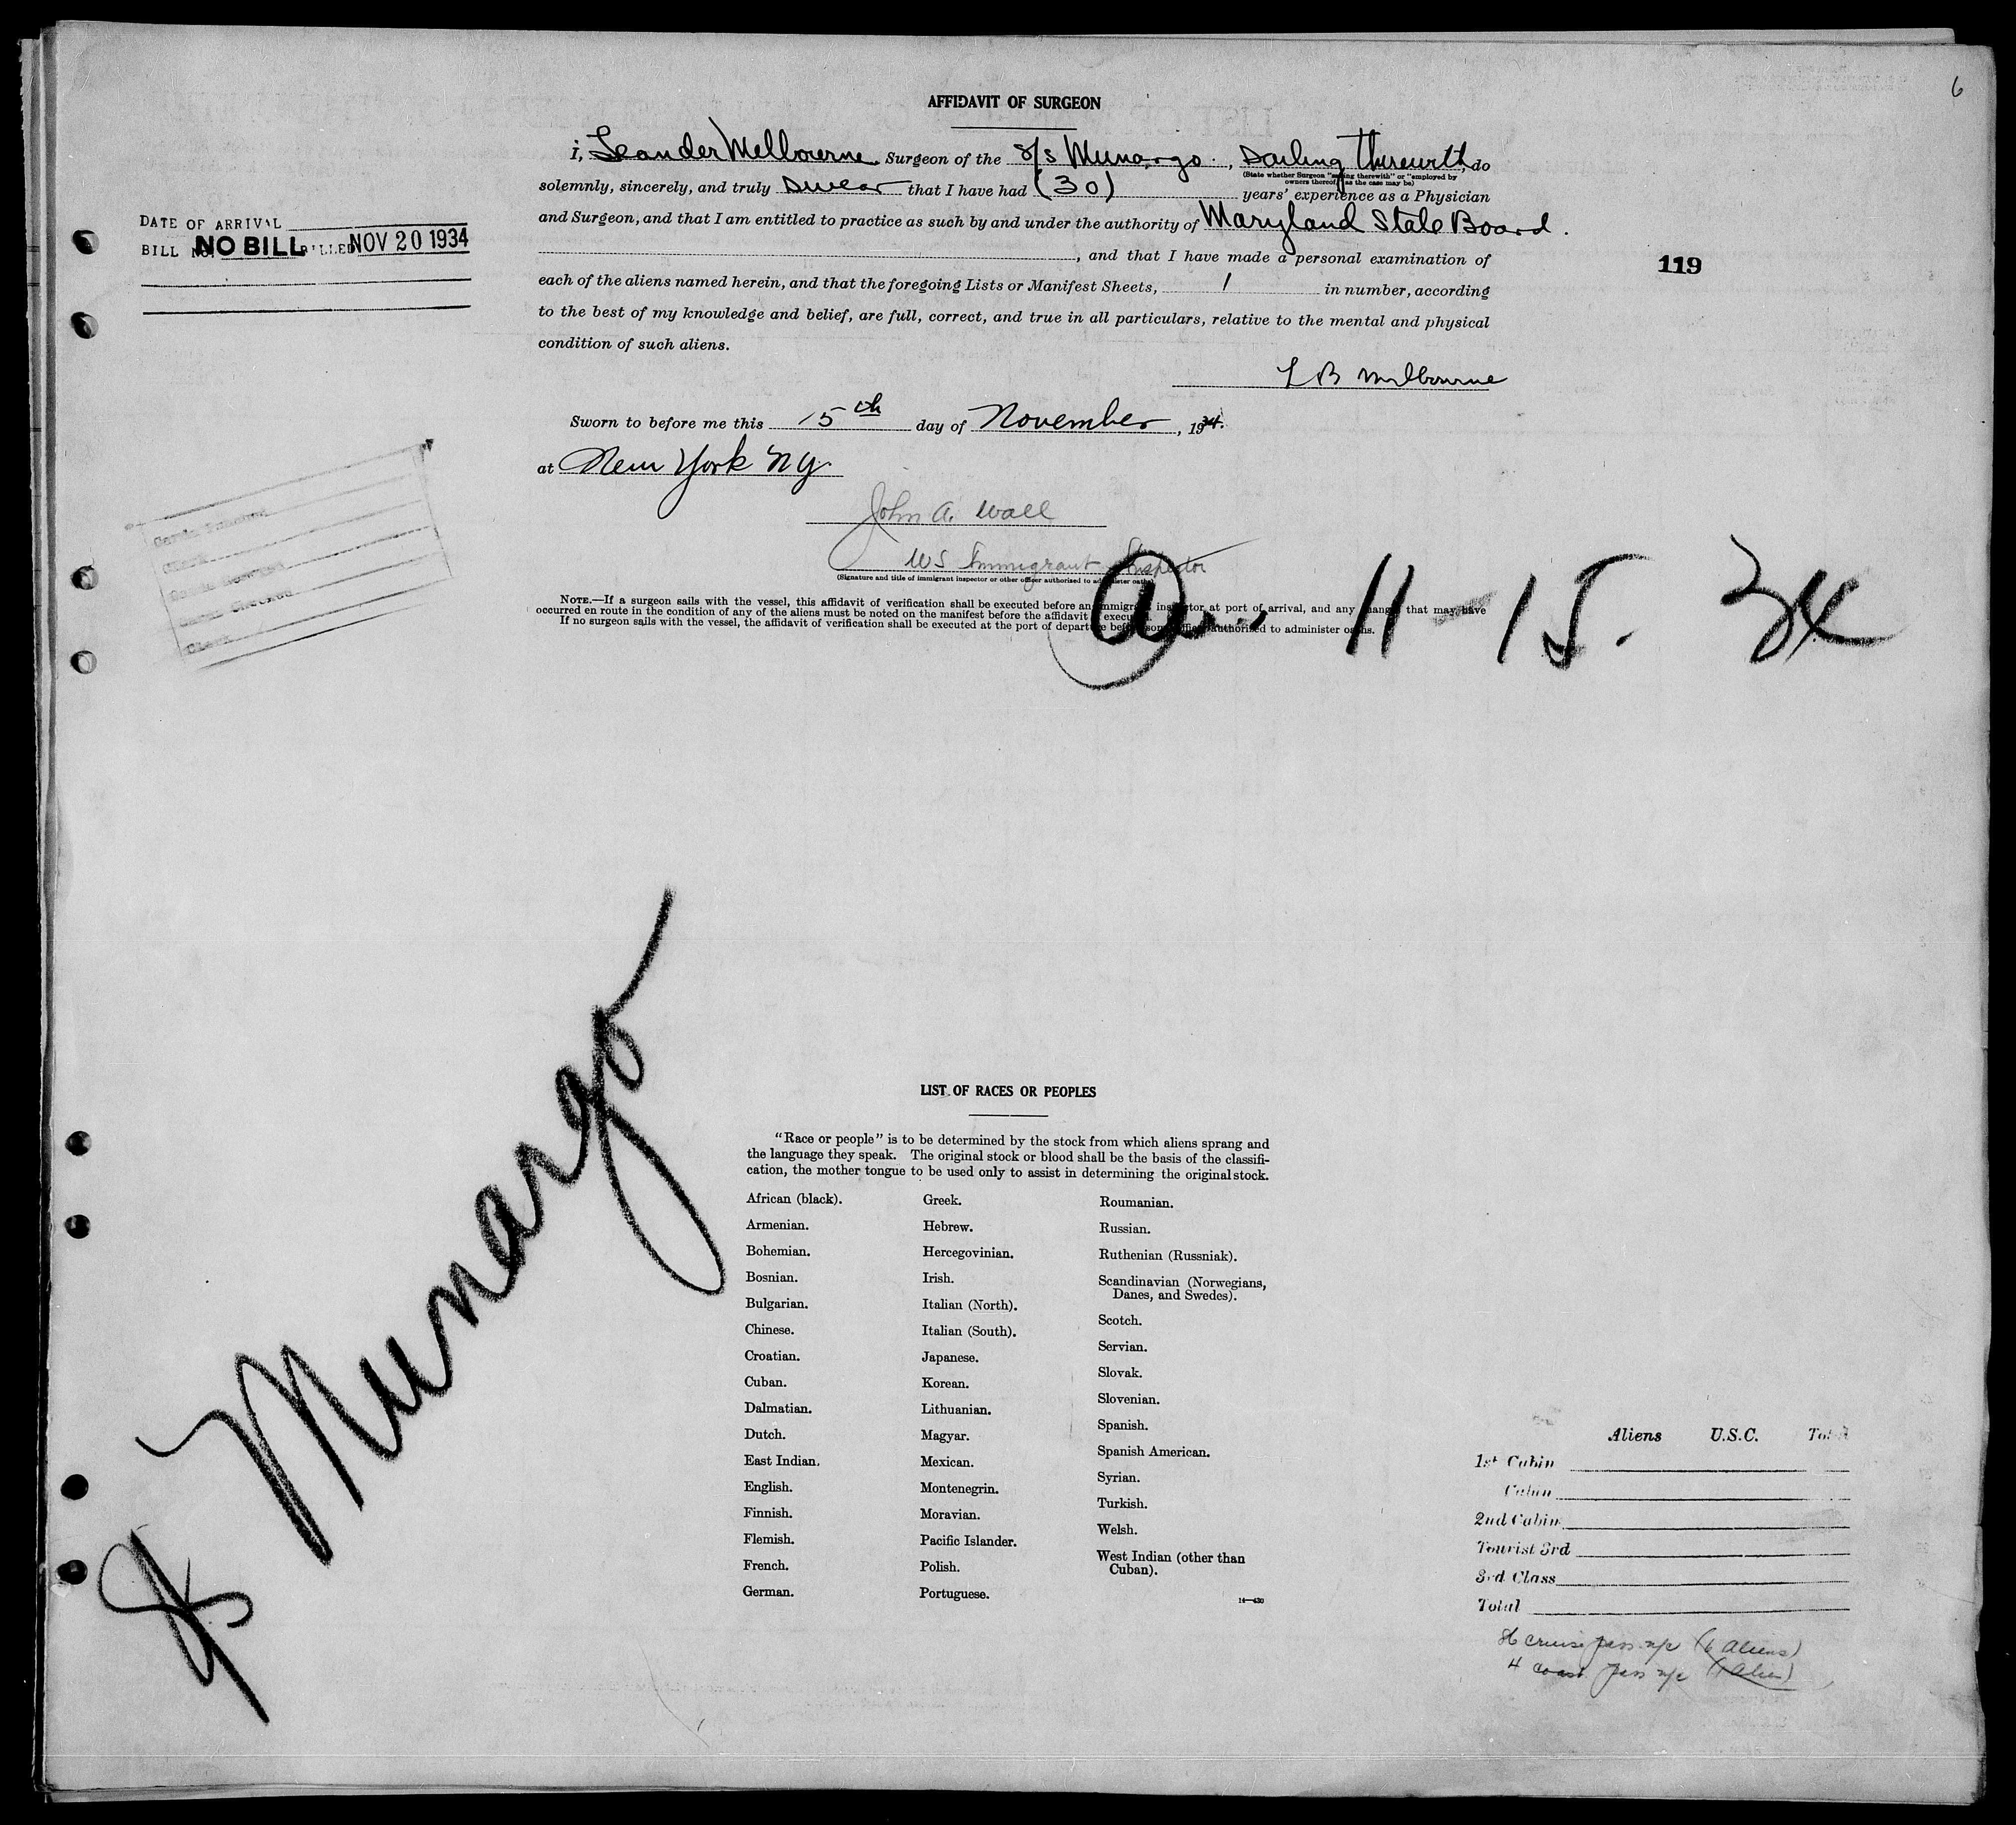 6
AFFIDAVIT OF SURGEON
I, Leander Melbourne, Surgeon of the S/S Munargo, Sailing therewith, do
(State whether Surgeon "sailing therewith" or "employed by owners thereof," as the case may be)
solemnly, sincerely, and truly swear that I have had (30) years' experience as a Physician
and Surgeon, and that I am entitled to practice as such by and under the authority of Maryland State Board.
, and that I have made a personal examination of
each of the aliens named herein, and that the foregoing Lists or Manifest Sheets, 1 in number, according
to the best of my knowledge and belief, are full, correct, and true in all particulars, relative to the mental and physical
condition of such aliens.
L B Milbourne
DATE OF ARRIVAL
BILL NO. NO BILL BILLED NOV 20 1934
119
Sworn to before me this 15th day of November, 1934.
at New York NY.
John A. Wall
US Immigrant Inspector
(Signature and title of immigrant inspector or other officer authorized to administer oaths)
NOTE.—If a surgeon sails with the vessel, this affidavit of verification shall be executed before an immigrant inspector at port of arrival, and any changes that may have
occurred en route in the condition of any of the aliens must be noted on the manifest before the affidavit is executed.
If no surgeon sails with the vessel, the affidavit of verification shall be executed at the port of departure before some officer authorized to administer oaths.
11-15. 34
S/S Munargo
LIST OF RACES OR PEOPLES
"Race or people" is to be determined by the stock from which aliens sprang and
the language they speak. The original stock or blood shall be the basis of the classifi-
cation, the mother tongue to be used only to assist in determining the original stock.
African (black).
Armenian.
Bohemian.
Bosnian.
Bulgarian.
Chinese.
Croatian.
Cuban.
Dalmatian.
Dutch.
East Indian.
English.
Finnish.
Flemish.
French.
German.
Greek.
Hebrew.
Hercegovinian.
Irish.
Italian (North).
Italian (South).
Japanese.
Korean.
Lithuanian.
Magyar.
Mexican.
Montenegrin.
Moravian.
Pacific Islander.
Polish.
Portuguese.
Roumanian.
Russian.
Ruthenian (Russniak).
Scandinavian (Norwegians,
Danes, and Swedes).
Scotch.
Servian.
Slovak.
Slovenian.
Spanish.
Spanish American.
Syrian.
Turkish.
Welsh.
West Indian (other than
Cuban).
14—430
Aliens U.S.C. Total
1st Cabin
Cabin
2nd Cabin
Tourist 3rd
3rd Class
Total
86 cruise pass (6 aliens)
4 coast pass (1 alien)